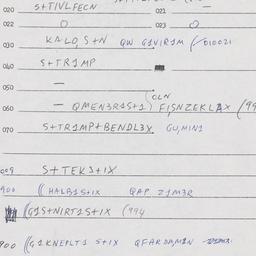 020 S+TIVLFECN 021 —
022 O 023 O
030 KALO,S+N QW G1VIR1M (010021
040 S+TR1MP
050 —
060 — QMEN3R1S+1) OLN FISNZEKLAX (99
070 S+TR1MP+BENDL3X GUMIN1
009 S+TEKS+IX
900 ((HALB1S+IX QAP Z1M3R
((G1S+NIRT1S+IX (994
900 ((G1KNEPLT1 S+IX QFARDAMIN